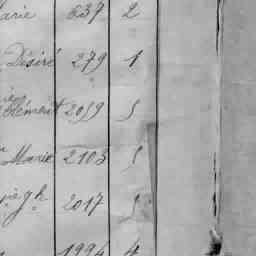 arie 637 2
Désiré 279 1
Clément 2059 5
Marie 2103 5
2017 5
1994 4